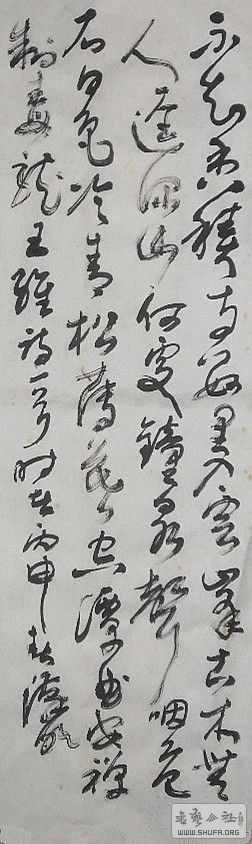 不知香積寺數里入雲峯古木無
人逕深山何處鐘泉聲咽危
石日色冷青松薄暮空潭曲安禪
制毒龍王維詩一首時在丙申秋
书艺公社
WWW.SHUFA.ORG